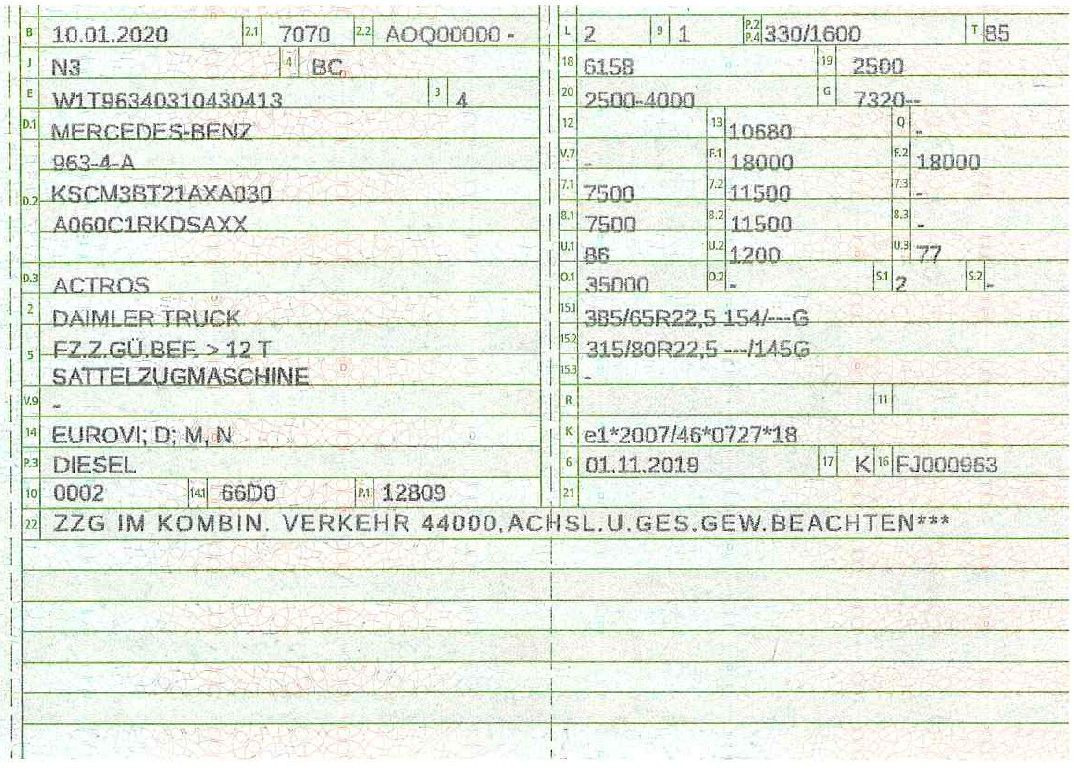 B 10.01.2020 2.1 7070 2.2 AOQ00000 -
J N3 4 BC
E W1T96340310430413 3 4
D.1 MERCEDES-BENZ
963-4-A
D.2 KSCM3BT21AXA030
A060C1RKDSAXX
D.3 ACTROS
2 DAIMLER TRUCK
5 FZ.Z.GÜ.BEF. > 12 T
SATTELZUGMASCHINE
V.9 -
14 EUROVI; D; M, N
P.3 DIESEL
10 0002 14.1 66D0 P.1 12809
L 2 9 1 P.2 P.4 330/1600 T 85
18 6158 19 2500
20 2500-4000 G 7320--
12 13 10680 Q -
V.7 - F.1 18000 F.2 18000
7.1 7500 7.2 11500 7.3 -
8.1 7500 8.2 11500 8.3 -
U.1 86 U.2 1200 U.3 77
O.1 35000 O.2 - S.1 2 S.2 -
15.1 385/65R22,5 154/---G
15.2 315/80R22,5 ---/145G
15.3 -
R 11
K e1*2007/46*0727*18
6 01.11.2019 17 K 16 FJ000963
21
22 ZZG IM KOMBIN. VERKEHR 44000,ACHSL.U.GES.GEW.BEACHTEN***